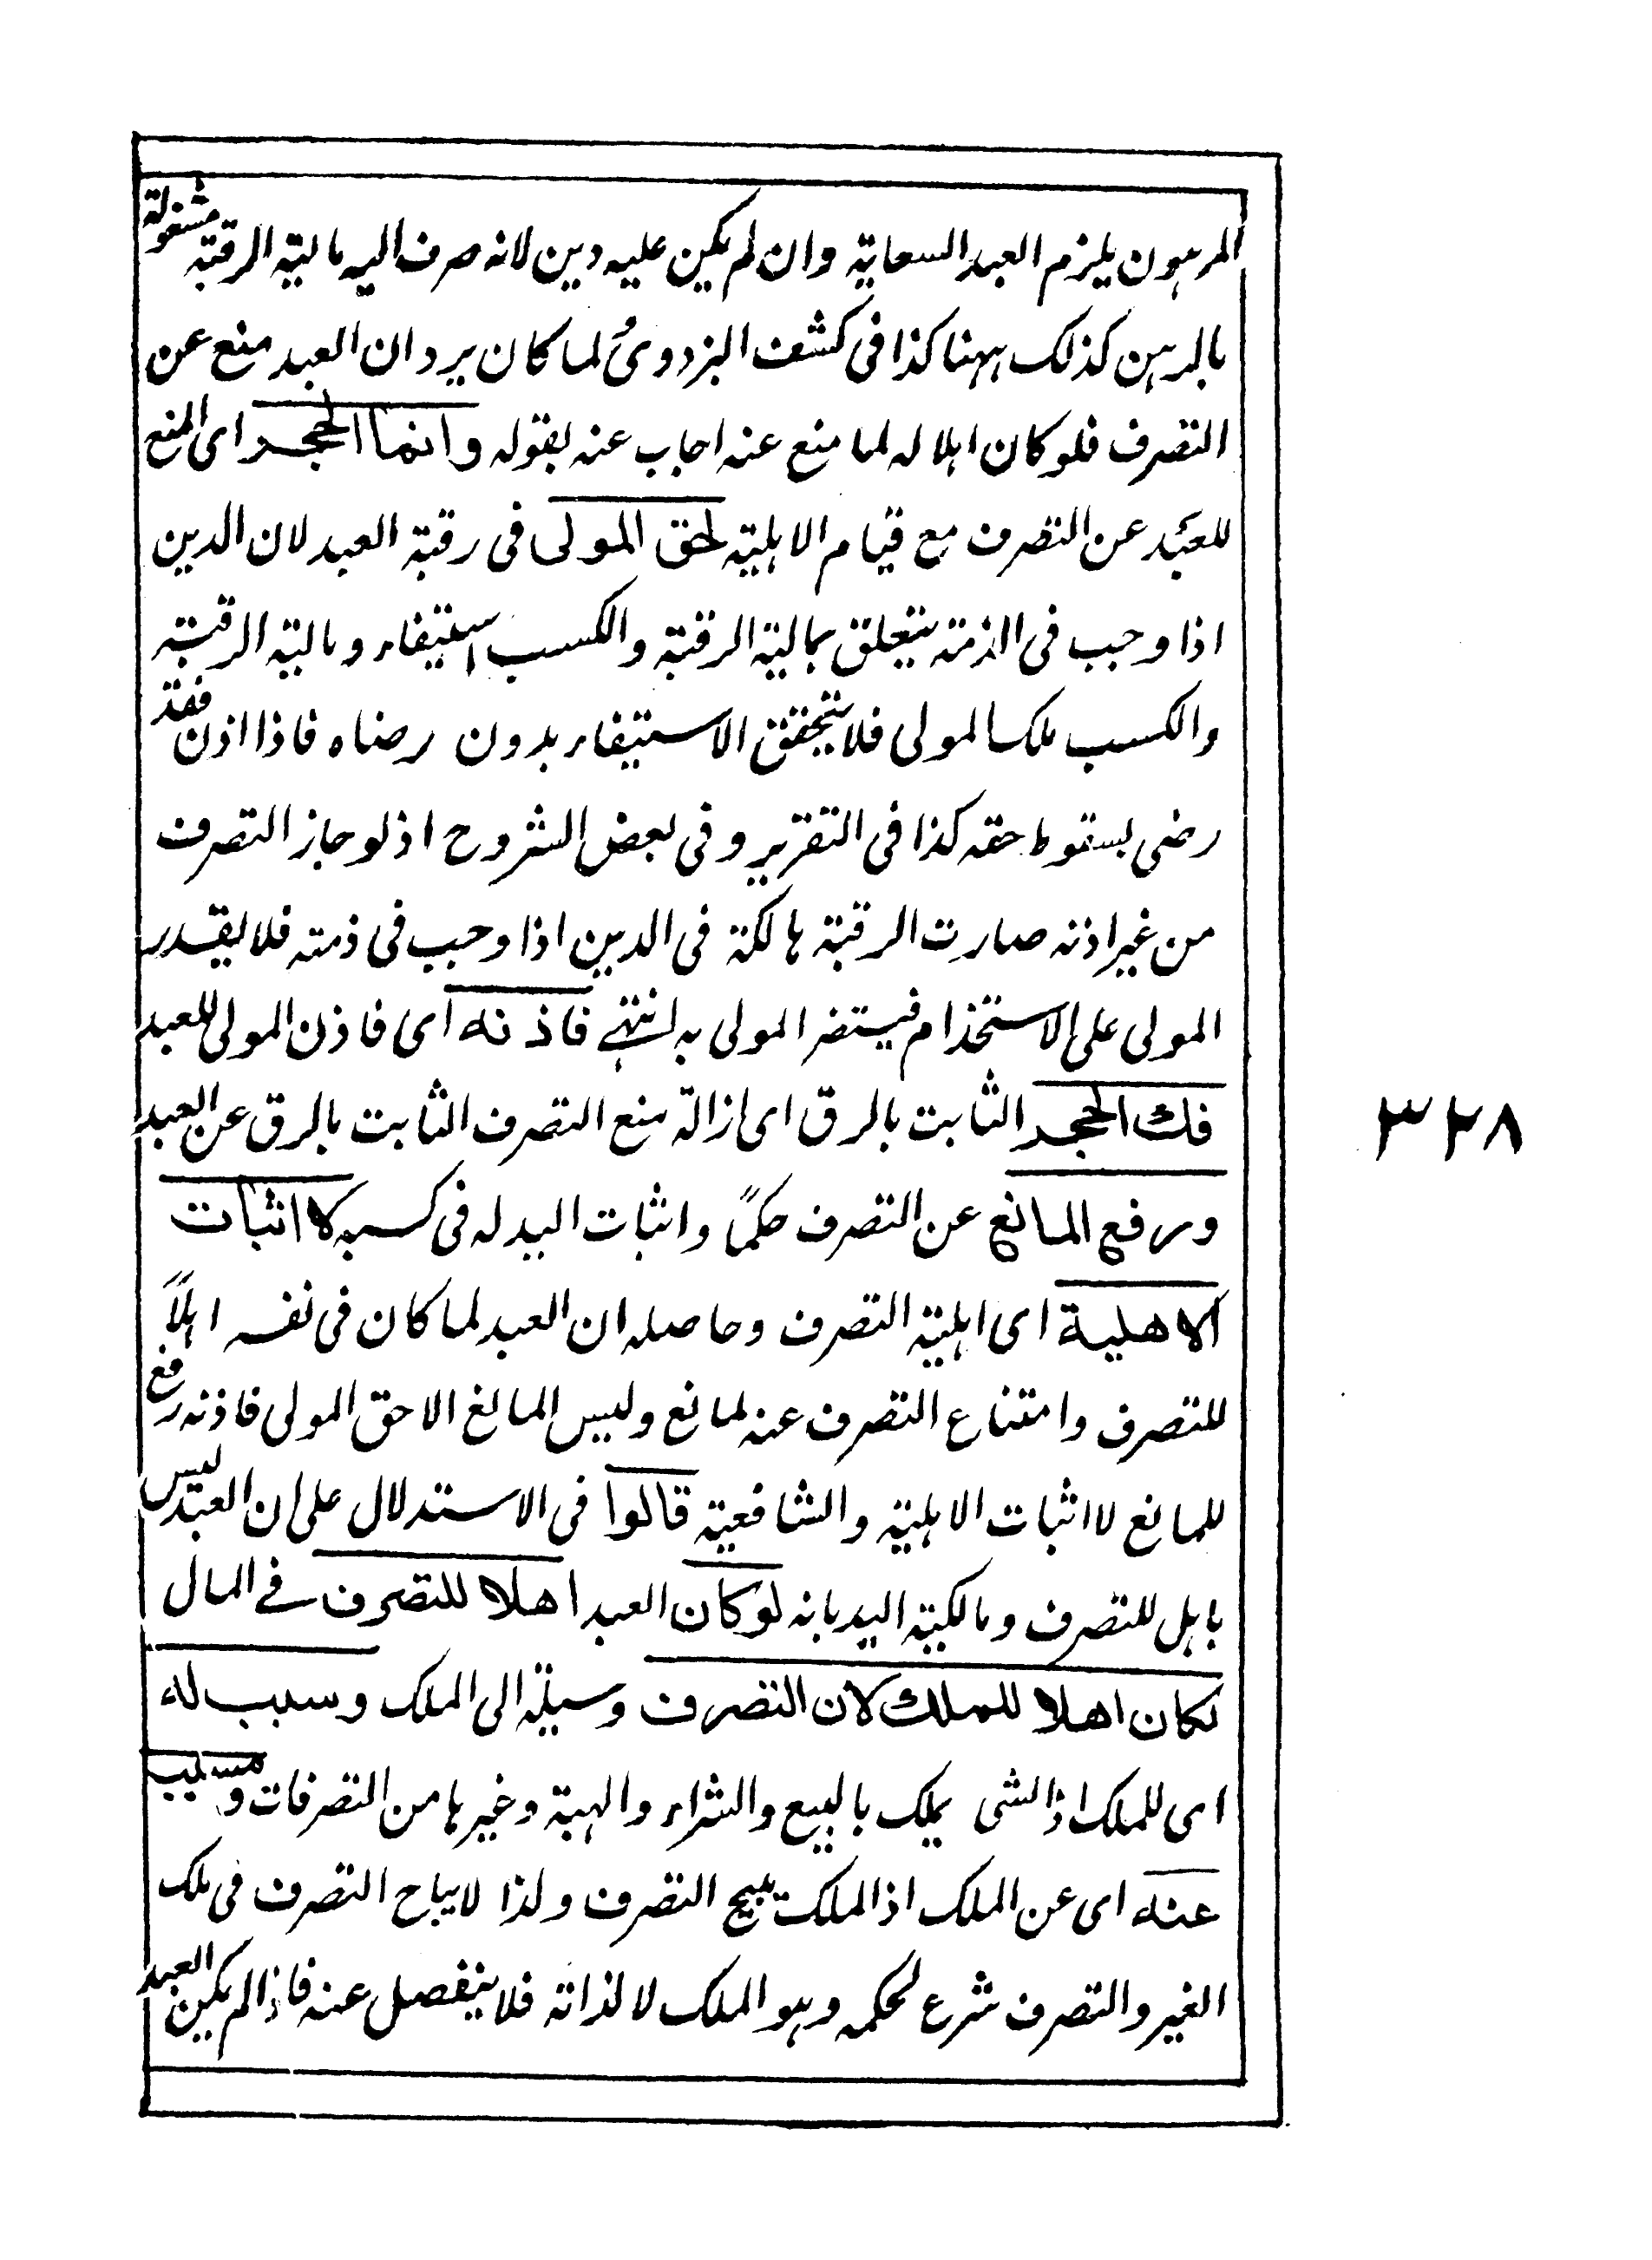 المرهون يلزم العبد السعاية وان لم يكن عليه دين لانه صرف اليه مالية الرقبة مشغولة
بالرهن كذلك ههنا كذا فى كشف البزدوى لما كان يرد ان العبد منع عن
التصرف فلو كان اهلا له لما منع عنه اجاب عنه بقوله وانما الحجر اى المنع
للعبد عن التصرف مع قيام الاهلية لحق المولى فى رقبة العبد لان الدين
اذا وجب فى الذمة يتعلق بمالية الرقبة والكسب استيفاء ومالية الرقبة
والكسب ملك المولى فلا يتحقق الاستيفاء بدون رضاه فاذا اذن فقد
رضى بسقوط حقه كذا فى التقرير وفى بعض الشروح اذ لو جاز التصرف
من غير اذنه صارت الرقبة هالكة فى الدين اذا وجب فى ذمته فلا يقدر
المولى على الاستخدام فيستضر المولى به انتهى فاذنه اى فاذن المولى للعبد
فك الحجر الثابت بالرق اى ازالة منع التصرف الثابت بالرق عن العبد
ورفع المانع عن التصرف حكمًا واثبات اليد له فى كسبه لا اثبات
الاهلية اى اهلية التصرف وحاصله ان العبد لما كان فى نفسه اهلاً
للتصرف وامتناع التصرف عنه لمانع وليس المانع الا حق المولى فاذنه رفع
للمانع لا اثبات الاهلية والشافعية قالوا فى الاستدلال على ان العبد ليس
باهل للتصرف ومالكية اليد بانه لو كان العبد اهلا للتصرف فى المال
لكان اهلا للملك لان التصرف وسيلة الى الملك وسبب له
اى للملك اذ الشى يملك بالبيع والشراء والهبة وغيرها من التصرفات ومسبب
عنه اى عن الملك اذ الملك يبيح التصرف ولذا لا يباح التصرف فى ملك
الغير والتصرف شرع لحكمه وهو الملك لا لذاته فلا ينفصل عنه فاذا لم يكن العبد
٣٢٨